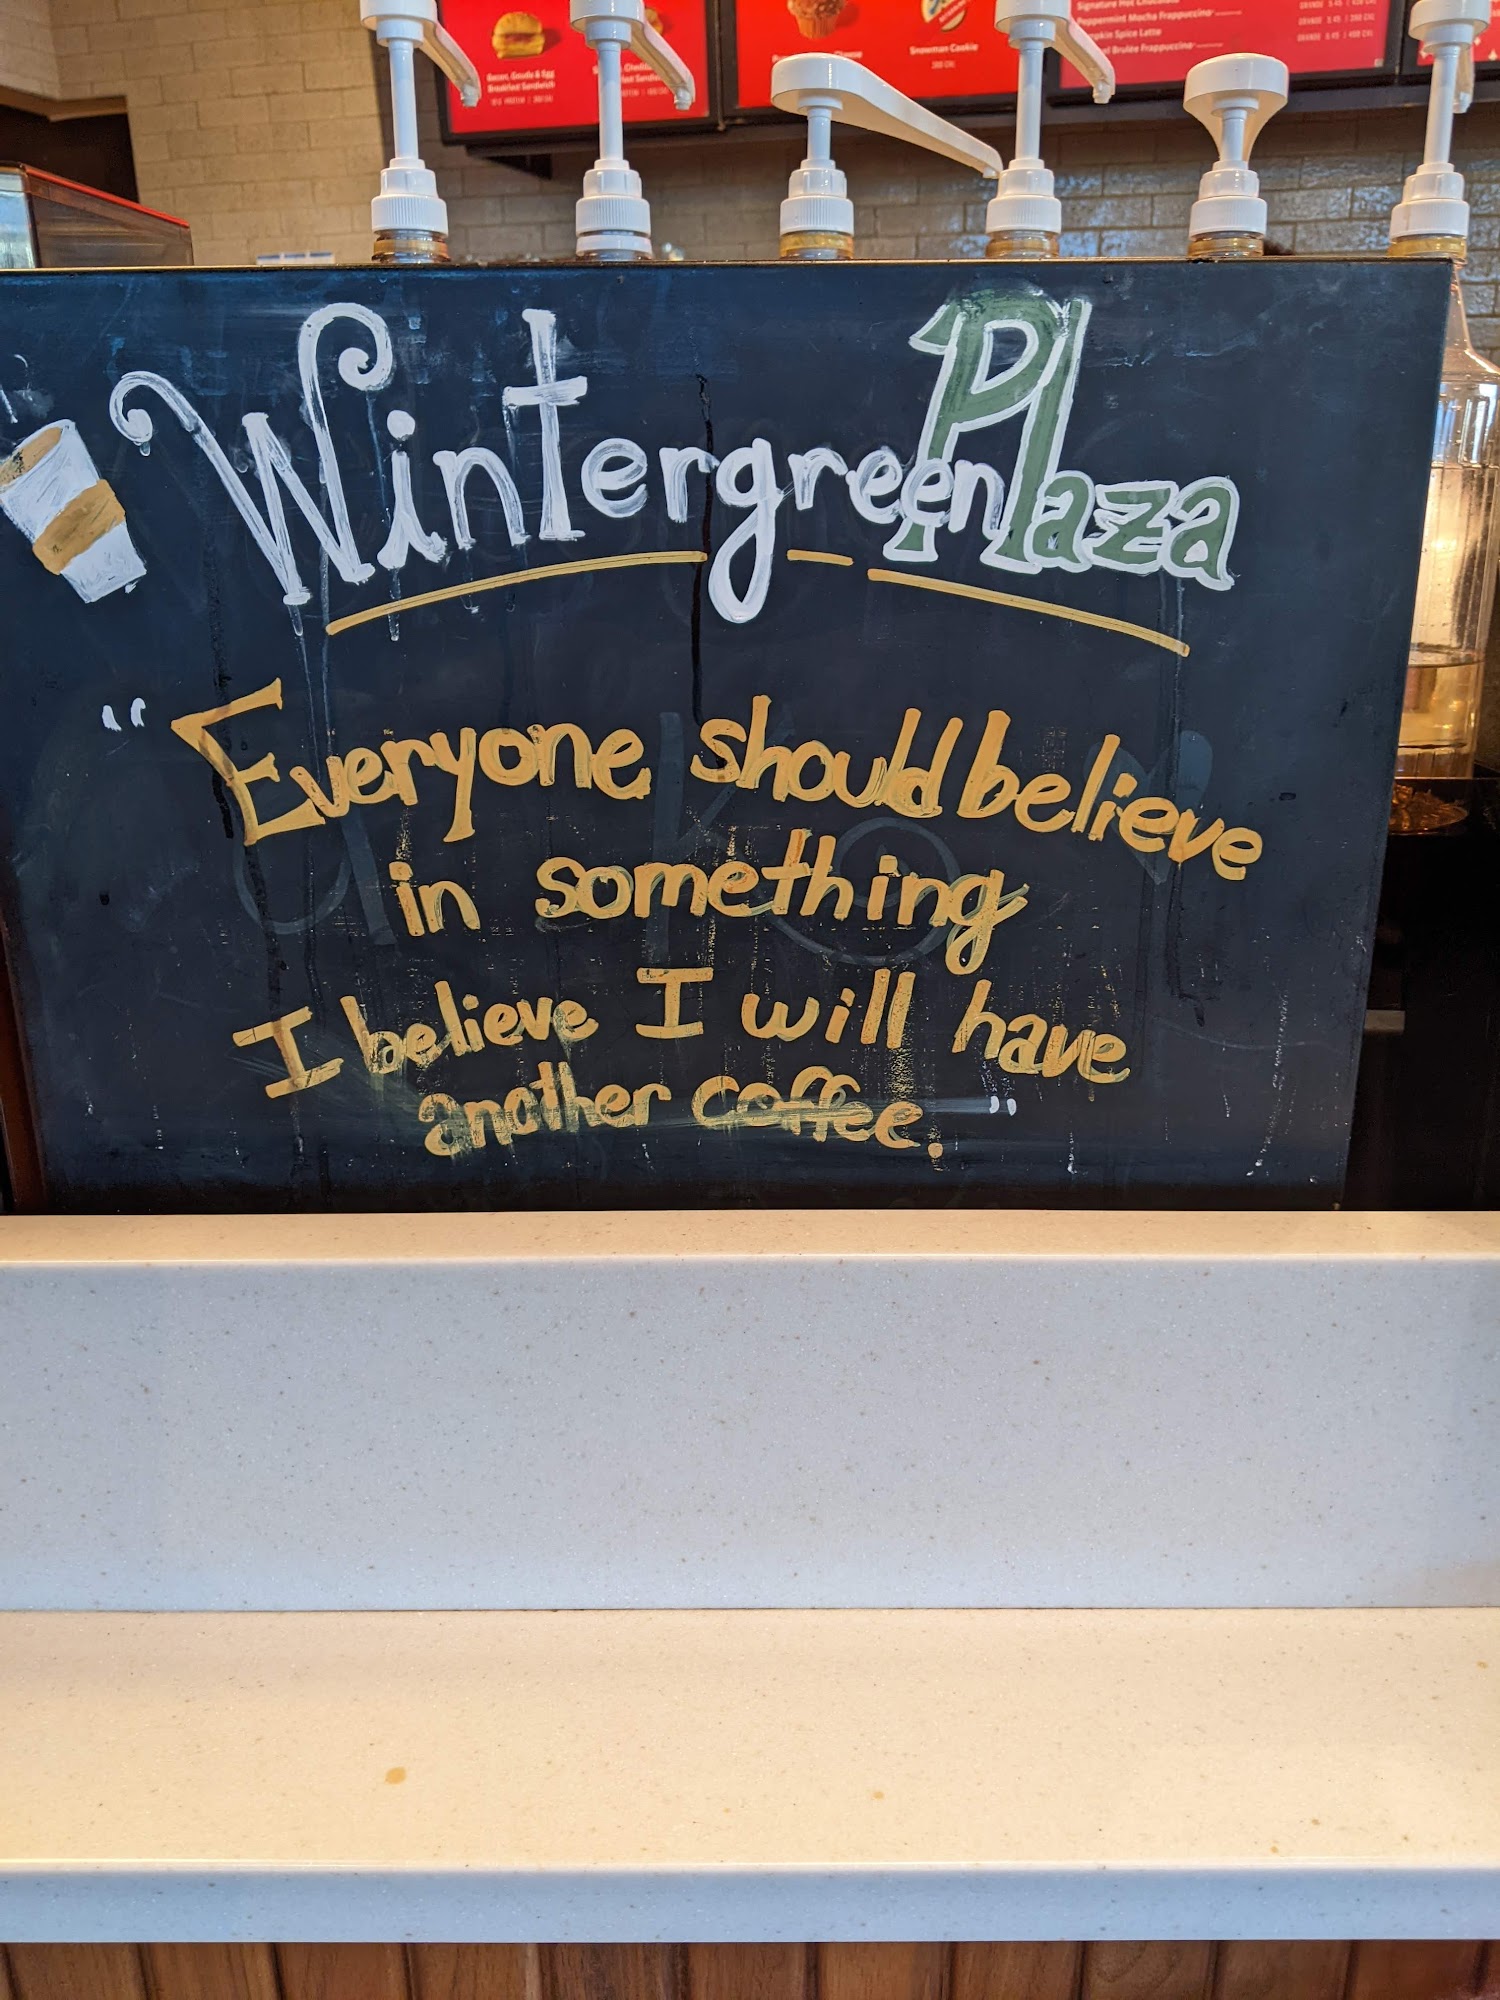 Bacon, Gouda & Egg
Breakfast Sandwich
Snowman Cookie
Signature Hot Chocolate
Peppermint Mocha Frappuccino
Spice Latte
Brulée Frappuccino
Wintergreen Plaza
"Everyone should believe
in something
I believe I will have
another coffee."